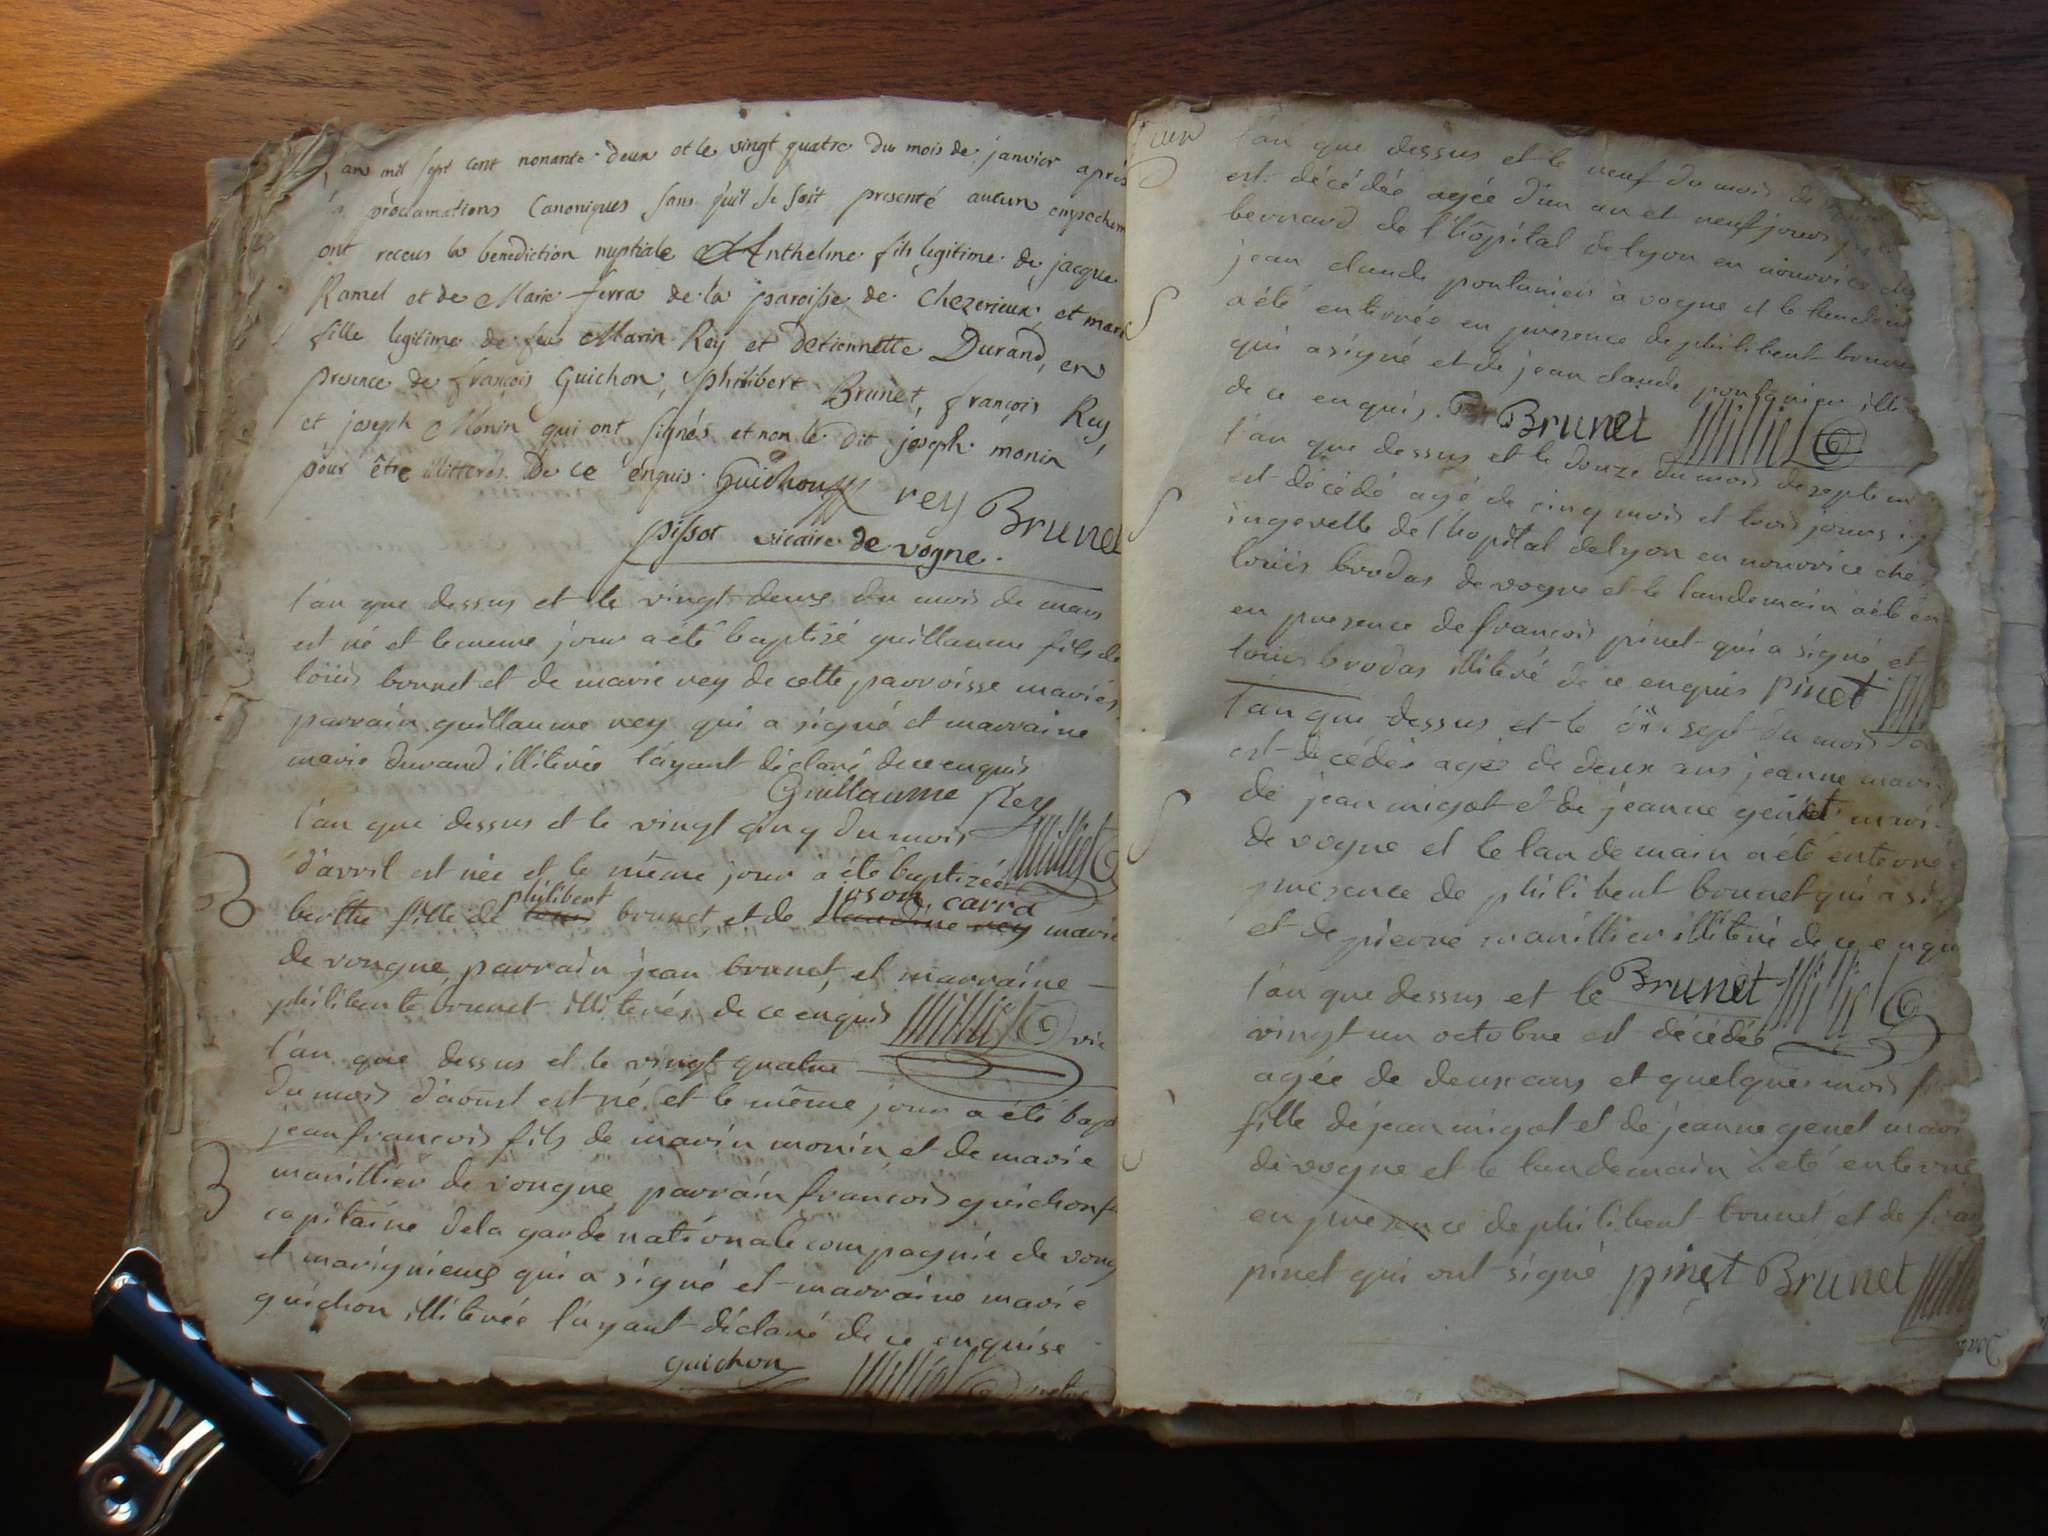 L'an mil sept cent nonante deux et le vingt quatre du mois de janvier après
proclamations Canoniques sans qu'il se soit presenté aucun empechem
ont receus la benediction nuptiale Anthelme fils legitime de jacque
Ramel et de Marie ferra de la paroisse de Chezerieux, et marie
fille legitime de feu Marin Rey et detiennette Durand, en
presence de françois Guichon, philibert Brunet, françois Rey,
et joseph Monin qui ont signés et non le dit joseph monin
pour être illitterés de ce enquis. Guichon rey Brunet
pissot vicaire de vogne.
l'an que dessus et le vingt deux du mois de mars
est né et le meme jour a été baptisé guillaume fils de
loüis brunet et de marie rey de cette parroisse mariés
parrain guillaume rey qui a signé et marraine
marie durand illiterée l'ayant déclaré de ce enquis
Guillaume Rey
l'an que dessus et le vingt cinq du mois Milliet
d'avril est née et le même jour a été baptizée
philibert joson carra
berthe fille de brunet, et de claudine rey marie
de vongne, parrain jean brunet, et marraine
philiberte brunet illiterés de ce enquis Milliet vic
l'an que dessus et le vingt quatre
du mois d'aoust est né et le même jour a été bapt
jean françois fils de marin monin et de marie
manillier de vongne parrain françois guichon
capitaine de la garde nationale compagnie de vong
et marignieux qui a signé et marraine marie
guichon illiterée l'ayant déclaré de ce enquise
guichon Milliet
l'an que dessus et le neuf du mois de
est décédée agée d'un an et neuf jours
bernard de l'hôpital de lyon en nourrice
jean claude pontanier à vogne et le
a été enterrée en presence de philibert brunet
qui a signé et de jean claude pontanier illi
de ce enquis. Brunet Milliet
l'an que dessus et le douze du mois de septem
est décédé agé de cinq mois et trois jours
ingevelle de l'hopital de lyon en nourrice ché
loüis brodas de vogne et le landemain a été en
en presence de françois pinet qui a signé et
louis brodas illiteré de ce enquis pinet
l'an que dessus et le dix sept du mois
est décédée agée de deux ans jeanne mari
de jean migot et de jeanne genet mari
de vogne et le landemain a été enterré
presence de philibert brunet qui a sig
et de pierre manillier illiteré de ce enqui
l'an que dessus et le Brunet Milliet
vingt un octobre est décédée
agée de deux ans et quelques mois
fille de jean migot et de jeanne genet mari
de vogne et le landemain a été enterré
en presence de philibert brunet et de fran
pinet qui ont signé pinet Brunet